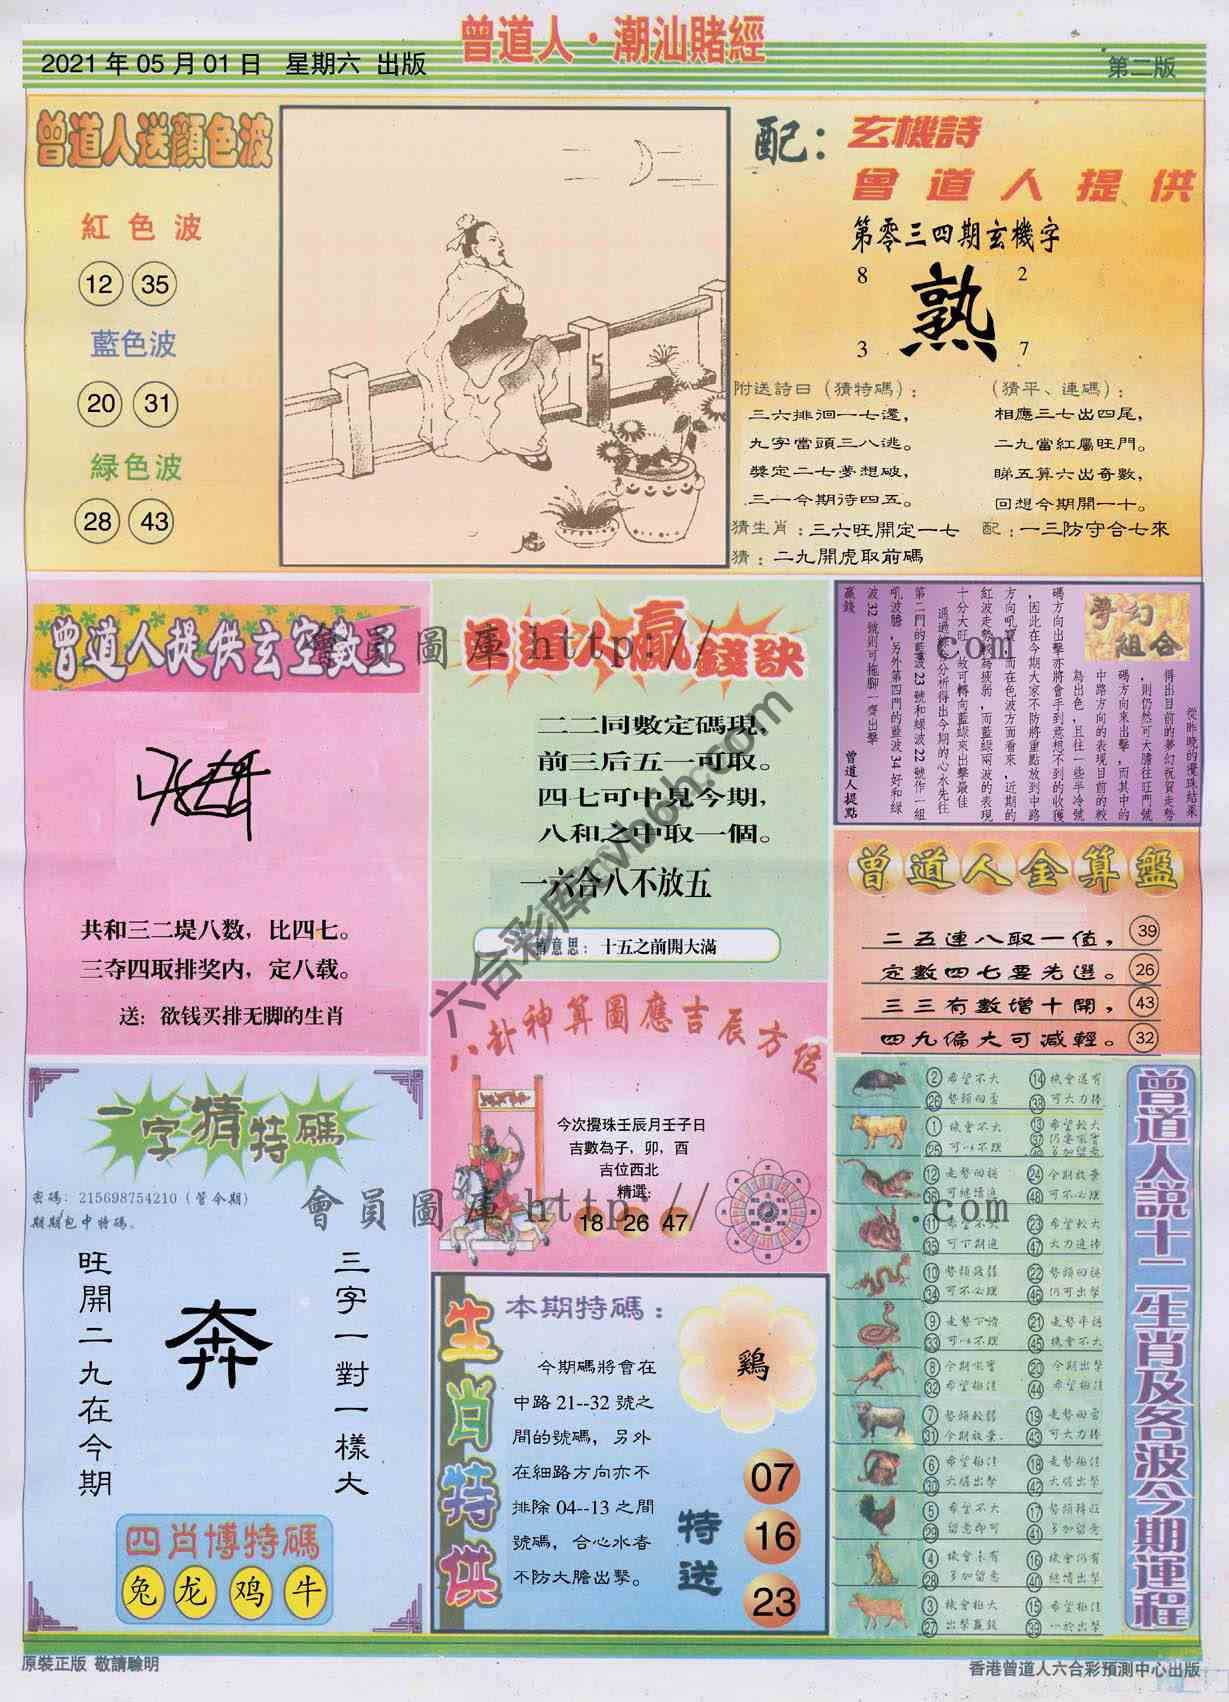 曾道人·潮汕賭經
2021年05月01日 星期六 出版
第二版
曾道人送顔色波
紅色波
12 35
藍色波
20 31
緑色波
28 43
5
配：
玄機詩
曾道人提供
第零三四期玄機字
8 2
熟
3 7
附送詩曰（猜特碼）：
三六排徊一七還，
九字當頭三八逃。
獎定二七夢想破，
三一今期待四五。
（猜平、連碼）：
相應三七出四尾，
二九當紅屬旺門。
睇五算六出奇數，
回想今期開一十。
猜生肖：三六旺開定一七 配：一三防守合七來
猜：二九開虎取前碼
曾道人提供玄空數
共和三二堤八数，比四七。
三夺四取排奖内，定八载。
送：欲钱买排无脚的生肖
曾道人贏錢訣
二二同數定碼現，
前三后五一可取。
四七可中見今期，
八和之中取一個。
一六合八不放五
意思：十五之前開大滿
夢幻組合
從昨晚的攪珠結果
得出目前的夢幻祝賀走勢
，則仍然可大膽往旺門號
碼方向來出擊，而其中的
中路方向的表現目前的較
為出色，且往一些半冷號
碼方向出擊亦將會手到意想不到的收獲
，因此在今期大家不防將重點放到中路
方向吼寶，而在色波方面看來，近期的
紅波走勢較為疲弱，而藍綠兩波的表現
十分大旺，故可轉向藍綠來出擊最佳
分析得出今期的心水先往
第二門的藍波23號和綠波22號作一組
吼波膽，另外第四門的藍波34好和綠
波32號則可拖腳一齊出擊
贏錢
曾道人提點
曾道人金算盤
二五連八取一值， 39
定數四七要先選。 26
三三有數增十開， 43
四九偏大可減輕。 32
八卦神算圖應吉辰方位
今次攪珠壬辰月壬子日
吉數為子，卯，酉
吉位西北
精選:
18 26 47
一字猜特碼
密碼：215698754210（管今期）
期期包中特碼。
三字一對一樣大
奔
旺開二九在今期
四肖博特碼
兔 龙 鸡 牛
生肖特供
本期特碼：
今期碼將會在
中路21--32號之
間的號碼，另外
在細路方向亦不
排除04--13之間
號碼，合心水者
不防大膽出擊。
鷄
特送
07
16
23
曾道人説十二生肖及各波今期運程
② 希望不大 ⑭ 機會還有
㉖ ㊳ 可大力捧
① 機會不大 ⑬ 希望較大
㉕ 可以不理 ㊲
⑫ ㉔ 今期放棄
㊱ 可繼續追 ㊽ 可不必理
⑪ 希望不大 ㉓ 希望較大
㉟ 可下期追 ㊼ 大力追捧
⑩ ㉒
㉞ 可不必理 ㊻ 仍可出擊
⑨ ㉑ 走勢平穩
㉝ 可以不理 ㊺ 機會不大
⑧ 今期吼實 ⑳ 今期出擊
㉜ 希望極佳 ㊹ 希望極佳
⑦ 勢頭較弱 ⑲
㉛ 今期放棄 ㊸ 可大力捧
⑥ 希望極佳 ⑱ 走勢極佳
㉚ 大膽出擊 ㊷ 大膽出擊
⑤ 希望不大 ⑰
㉙ 留意即可 ㊶ 多加留意
④ 機會未有 ⑯ 機會仍有
㉘ 多加留意 ㊵ 繼續出擊
③ 機會極大 ⑮ 希望極佳
㉗ 出擊贏錢 ㊴ 一於出擊
原裝正版 敬請驗明
香港曾道人六合彩預測中心出版
會員圖庫 http:// .com
會員圖庫 http:// .com